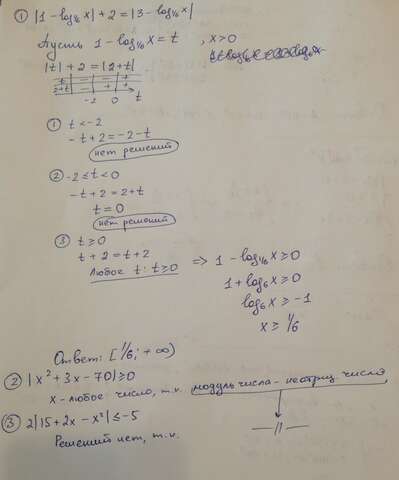 ① |1 - log₁/₆ x| + 2 = |3 - log₁/₆ x|
Пусть 1 - log₁/₆ x = t , x > 0
|t| + 2 = |2 + t|
t - - +
2+t - + +
-2 0 t
① t < -2
-t + 2 = -2 - t
нет решений
② -2 ≤ t < 0
-t + 2 = 2 + t
t = 0
нет решений
③ t ≥ 0
t + 2 = t + 2
Любое t: t ≥ 0
=> 1 - log₁/₆ x ≥ 0
1 + log₆ x ≥ 0
log₆ x ≥ -1
x ≥ 1/6
Ответ: [1/6; +∞)
② |x² + 3x - 70| ≥ 0
x - любое число, т.к. модуль числа - неотриц. число
③ 2|15 + 2x - x²| ≤ -5
Решений нет, т.к. —//—